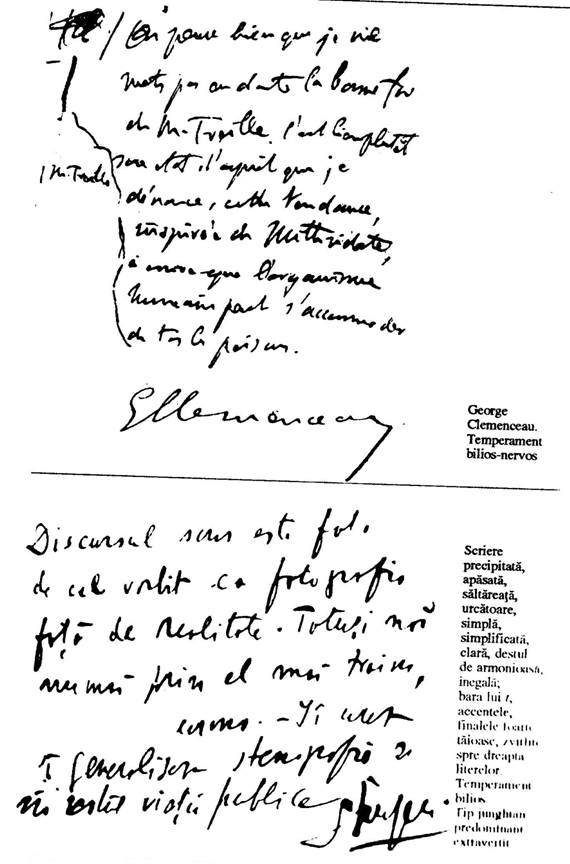 On pense bien que je ne
mets pas en doute la bonne foi
de M. Treille. C'est
que je
M. Treille
dénonce, cette tendance,
inspirée de Mithridate,
à que l'organisme
humain peut s'accommoder
de tous les poisons.
GClemenceau
George
Clemenceau.
Temperament
bilios-nervos
Discursul scris este
de cel vorbit ca fotografia
față de realitate. Totuși noi
numai prin el mai trăim,
generalizarea stenografiei
vieții publice
Scriere
precipitată,
apăsată,
săltăreață,
urcătoare,
simplă,
simplificată,
clară, destul
de armonioasă,
inegală;
bara lui t,
accentele,
finalele foarte
tăioase, zvîrlite
spre dreapta
literelor.
Temperament
bilios.
Tip junghian
predominant
extravertit